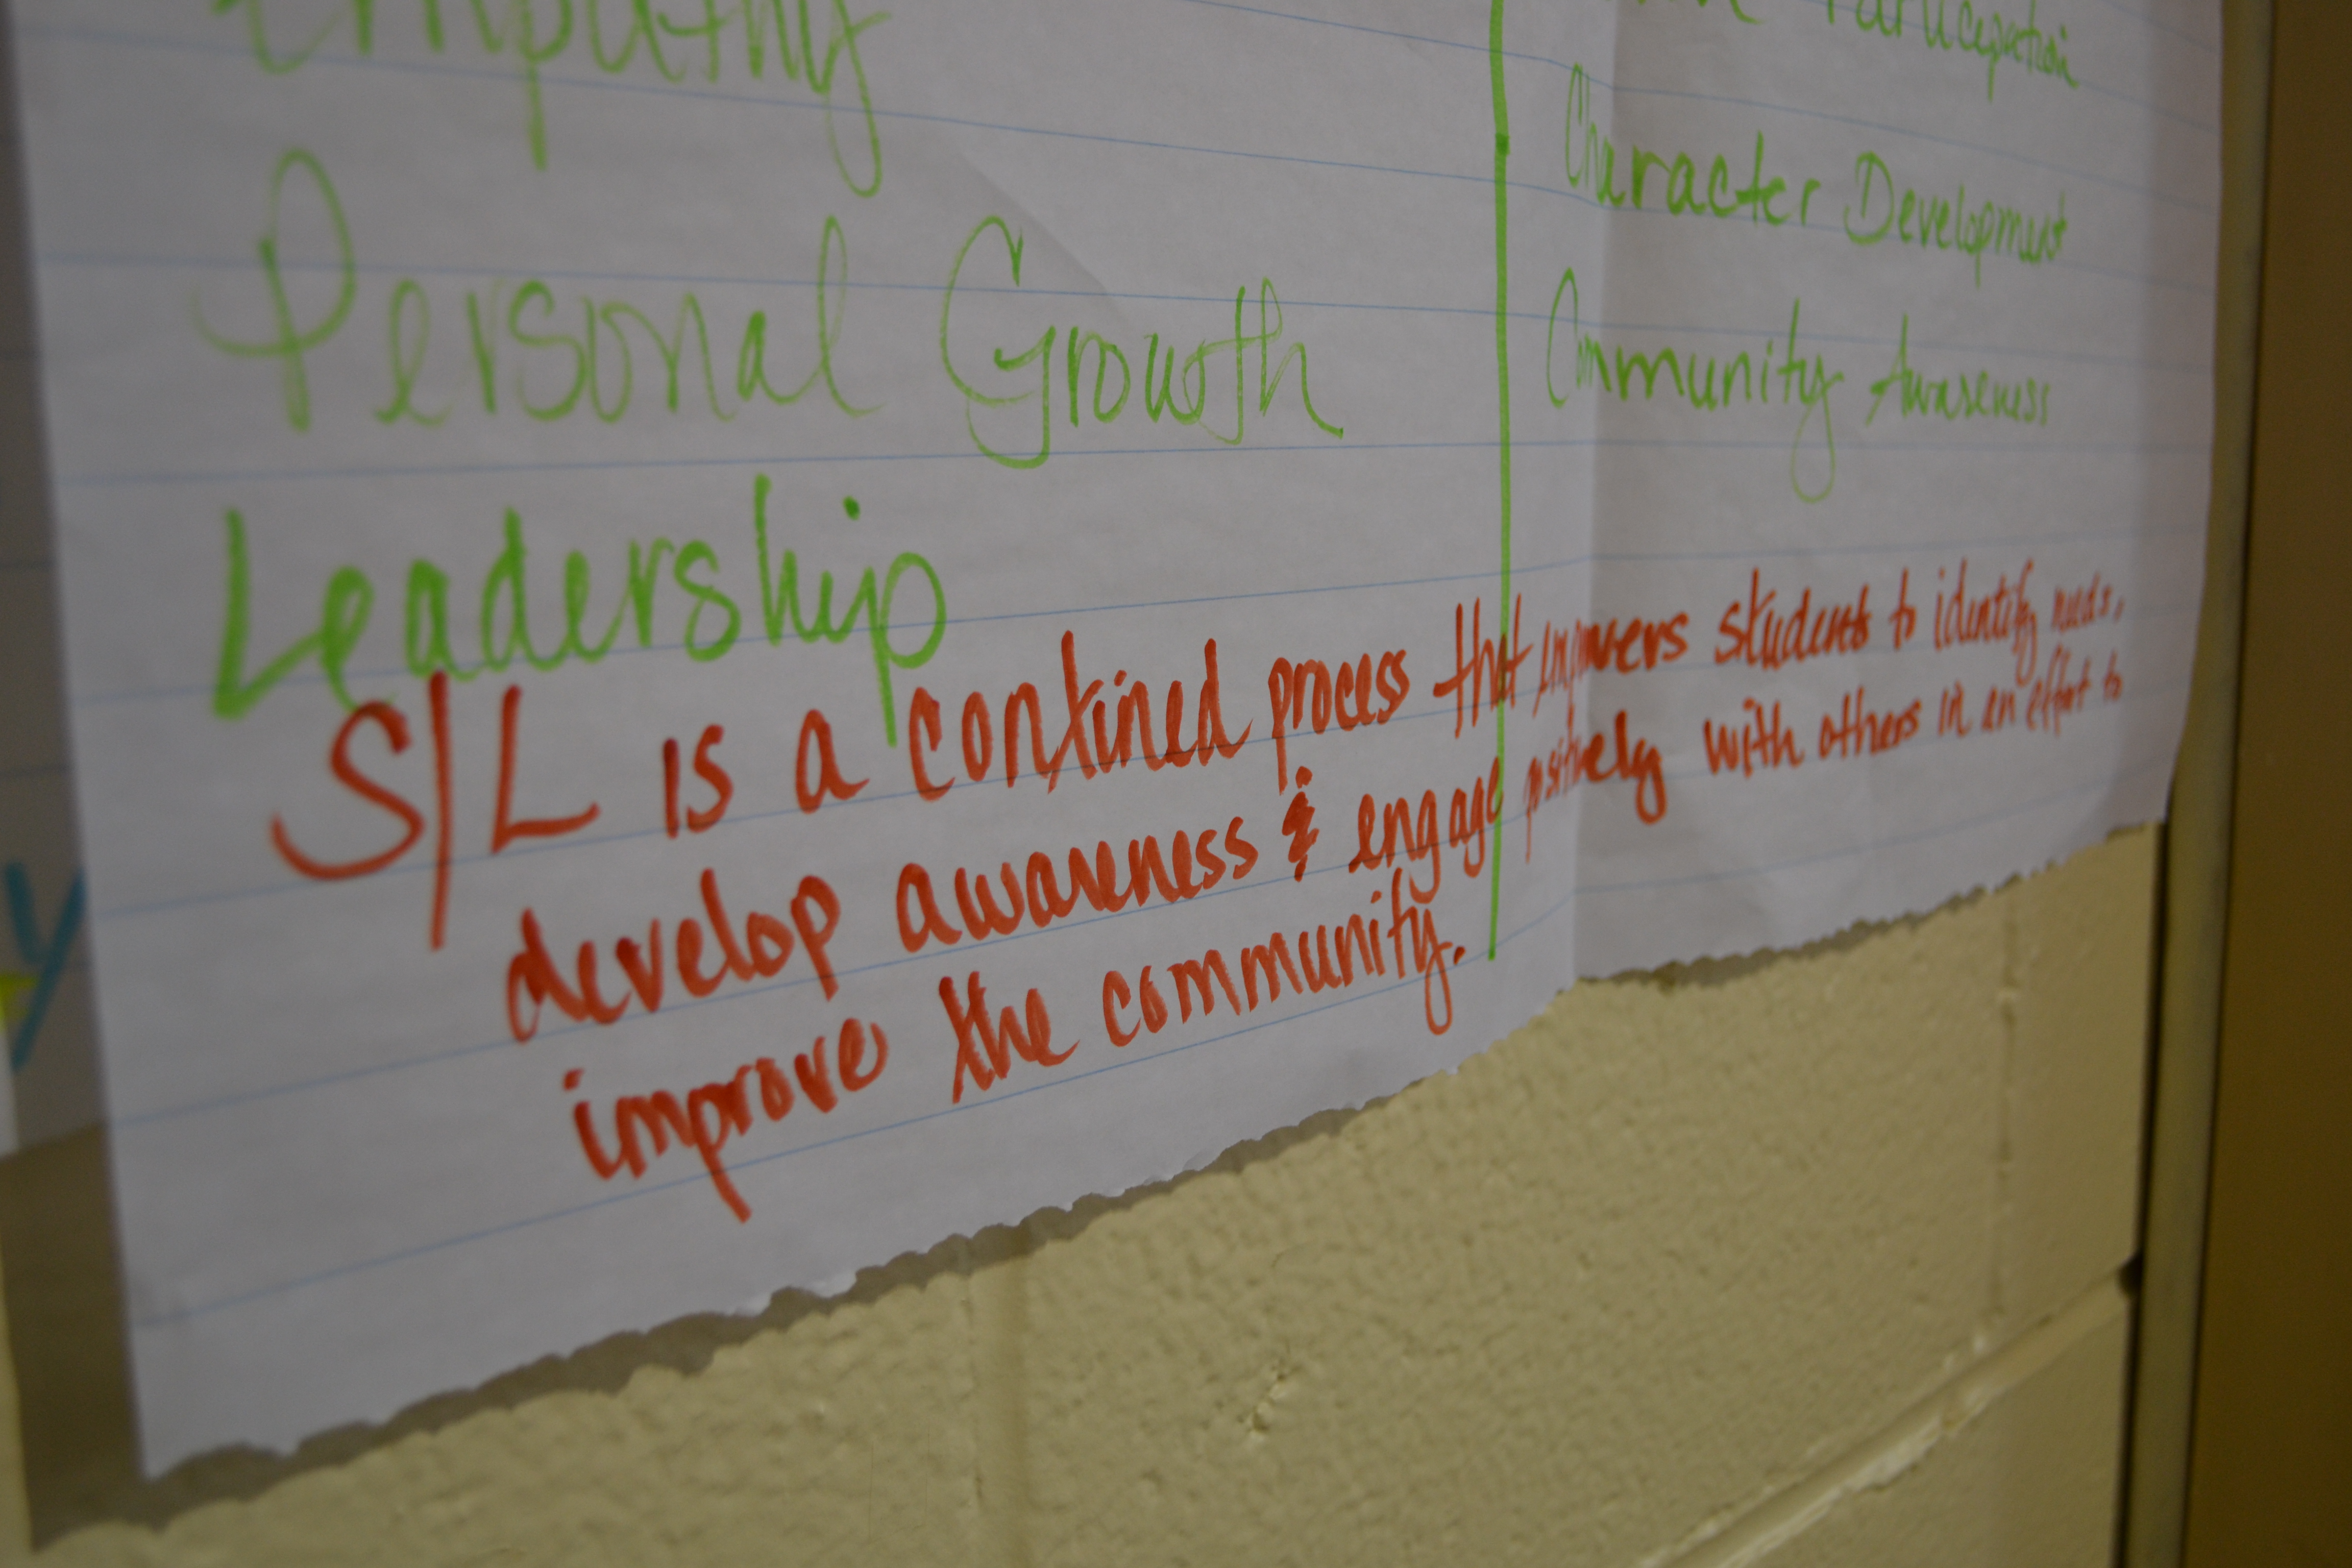 Empathy
Personal Growth
Leadership
Participation
Character Development
Community Awareness
S/L is a contined process that empowers students to identify needs,
develop awareness & engage positively with others in an effort to
improve the community.